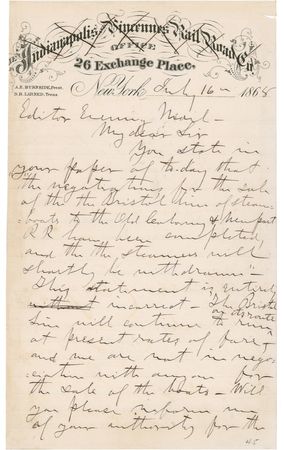 Indianapolis & Vincennes Rail Road Co.
OFFICE
26 Exchange Place,
A.E. BURNSIDE, Prest.
D.R. LARNED, Treas.
New York July 16th 1868
Editor Evening
My dear Sir
You state in
your paper of to-day that
the negotiations for the sale
of the the Bristol line of steam-
boats to the Old Colony & Newport
R R have been completed
and the the steamers will
shortly be withdrawn" -
This statement is entirely
without incorrect - The Bristol
line will continue to run
at present rates of fare,
and we are not in nego-
ciation with anyone for
the sale of the boats - Will
you please inform me
of your authority for the
45